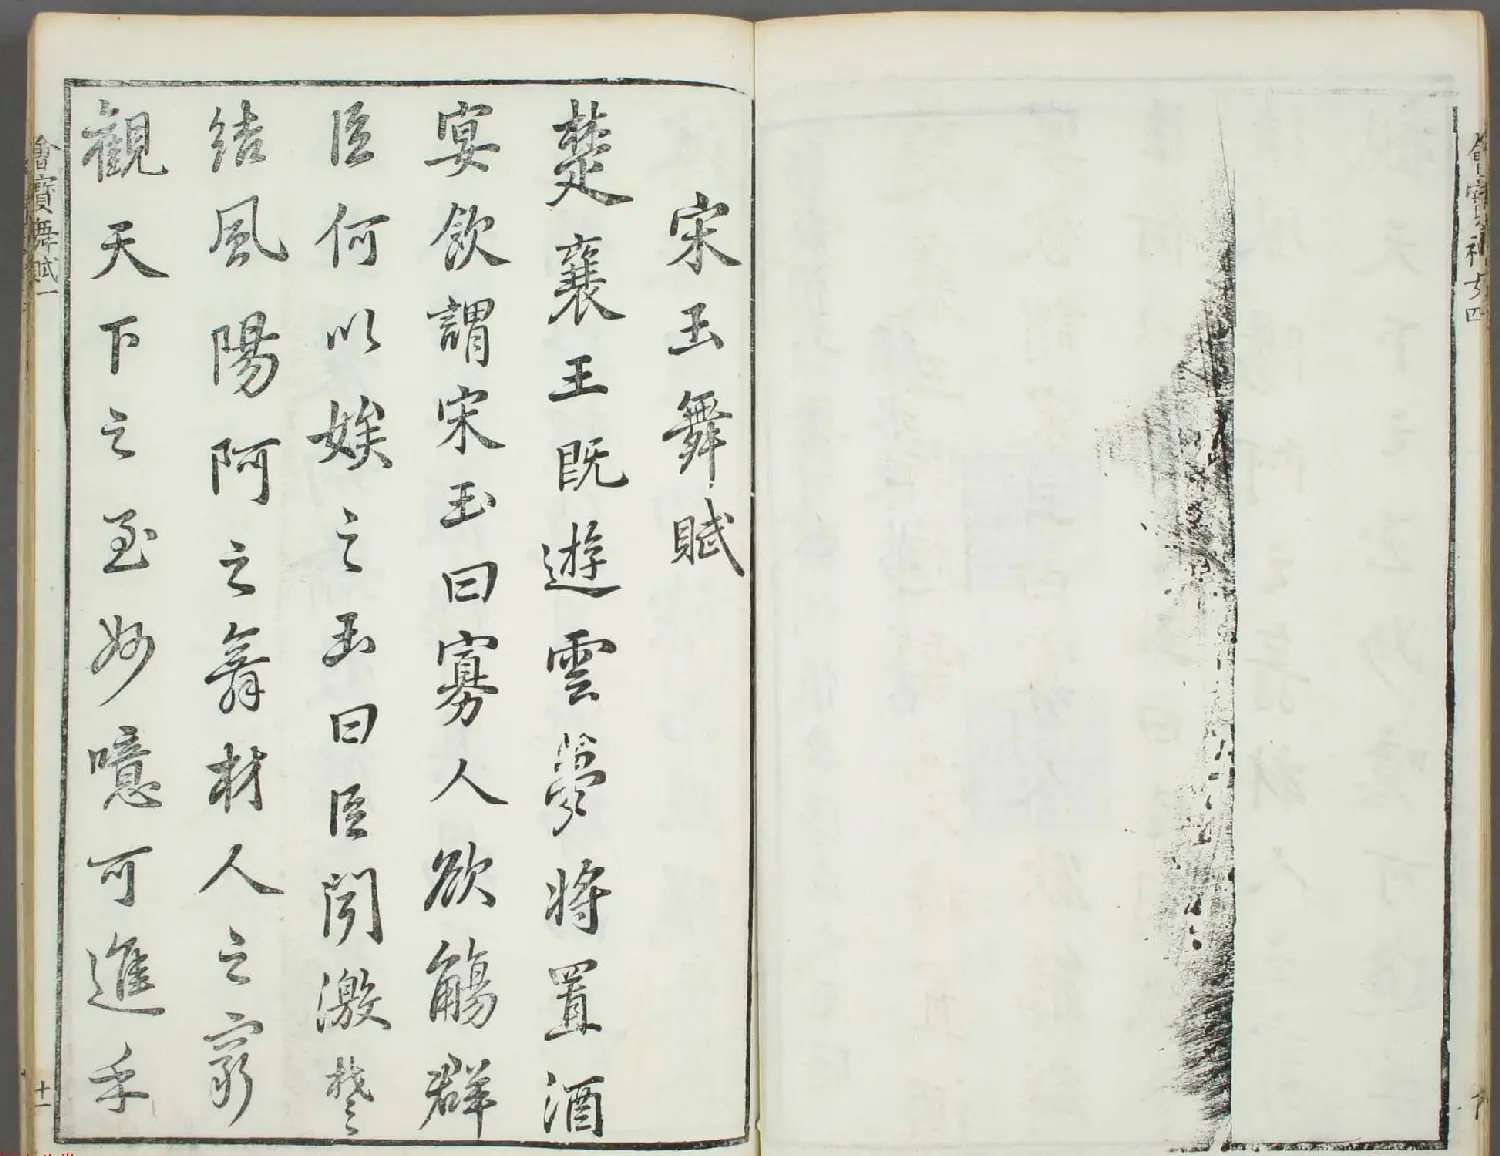 宋玉舞賦
楚襄王既遊雲夢將置酒
宴飲謂宋玉曰寡人欲觴群
臣何以娛之玉曰臣聞激楚
結風陽阿之舞材人之窮
觀天下之至妙噫可進乎
會寶舞賦一
十一